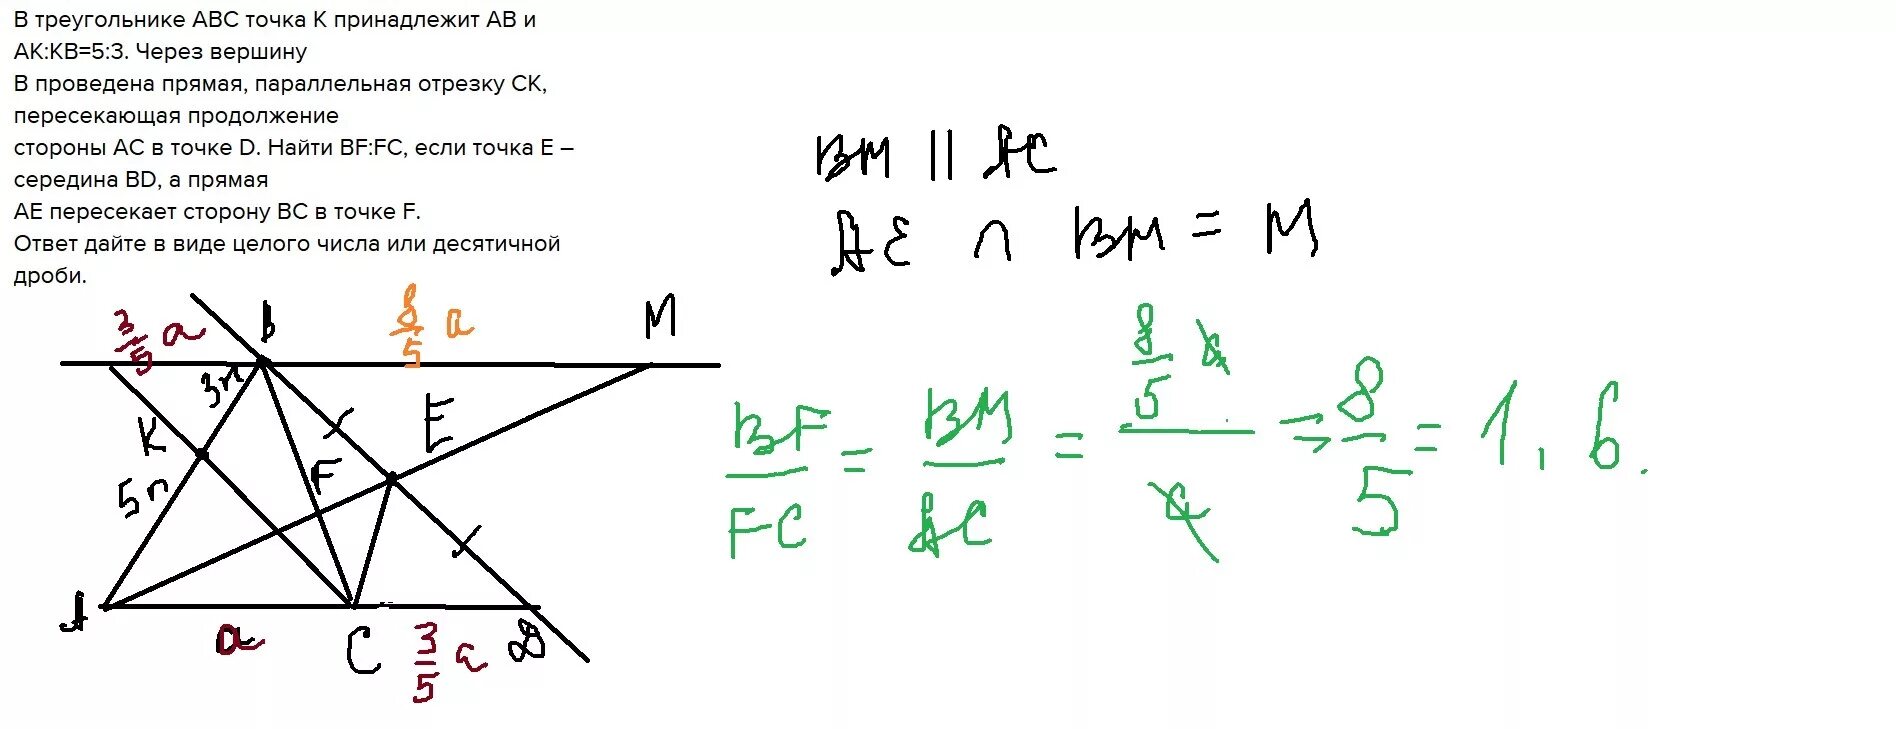 В треугольнике ABC точка K принадлежит AB и
AK:KB=5:3. Через вершину
B проведена прямая, параллельная отрезку CK,
пересекающая продолжение
стороны AC в точке D. Найти BF:FC, если точка E –
середина BD, а прямая
AE пересекает сторону BC в точке F.
Ответ дайте в виде целого числа или десятичной
дроби.
BM || AC
AE ∩ BM = M
3/5 a B 8/5 a M
3n
K E
5n F
A a C 3/5 a D
BF/FC = BM/AC = 8/5 a / a = 8/5 = 1,6.